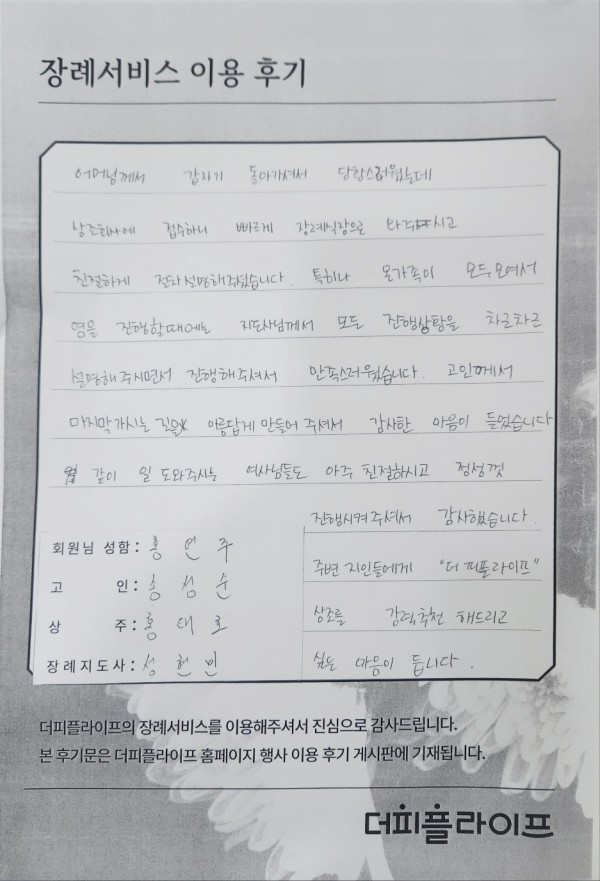 장례서비스 이용 후기
어머님께서 갑자기 돌아가셔서 당황스러웠는데
상조회사에 접수하니 빠르게 장례식장으로 와주시고
친절하게 전화설명해주셨습니다. 특히나 온가족이 모두모여서
염을 진행할때에는 지도사님께서 모든 진행상황을 차근차근
설명해주시면서 진행해주셔서 만족스러웠습니다. 고인께서
마지막가시는 길을 아름답게 만들어 주셔서 감사한 마음이 들었습니다
같이 일 도와주시는 여사님들도 아주 친절하시고 정성껏
진행시켜주셔서 감사했습니다.
주변 지인들에게 "더피플라이프"
상조를 강력추천 해드리고
싶은 마음이 듭니다.
회원님 성함: 홍연주
고 인: 송성순
상 주: 홍태호
장례지도사: 성현민
더피플라이프의 장례서비스를 이용해주셔서 진심으로 감사드립니다.
본 후기문은 더피플라이프 홈페이지 행사 이용 후기 게시판에 기재됩니다.
더피플라이프